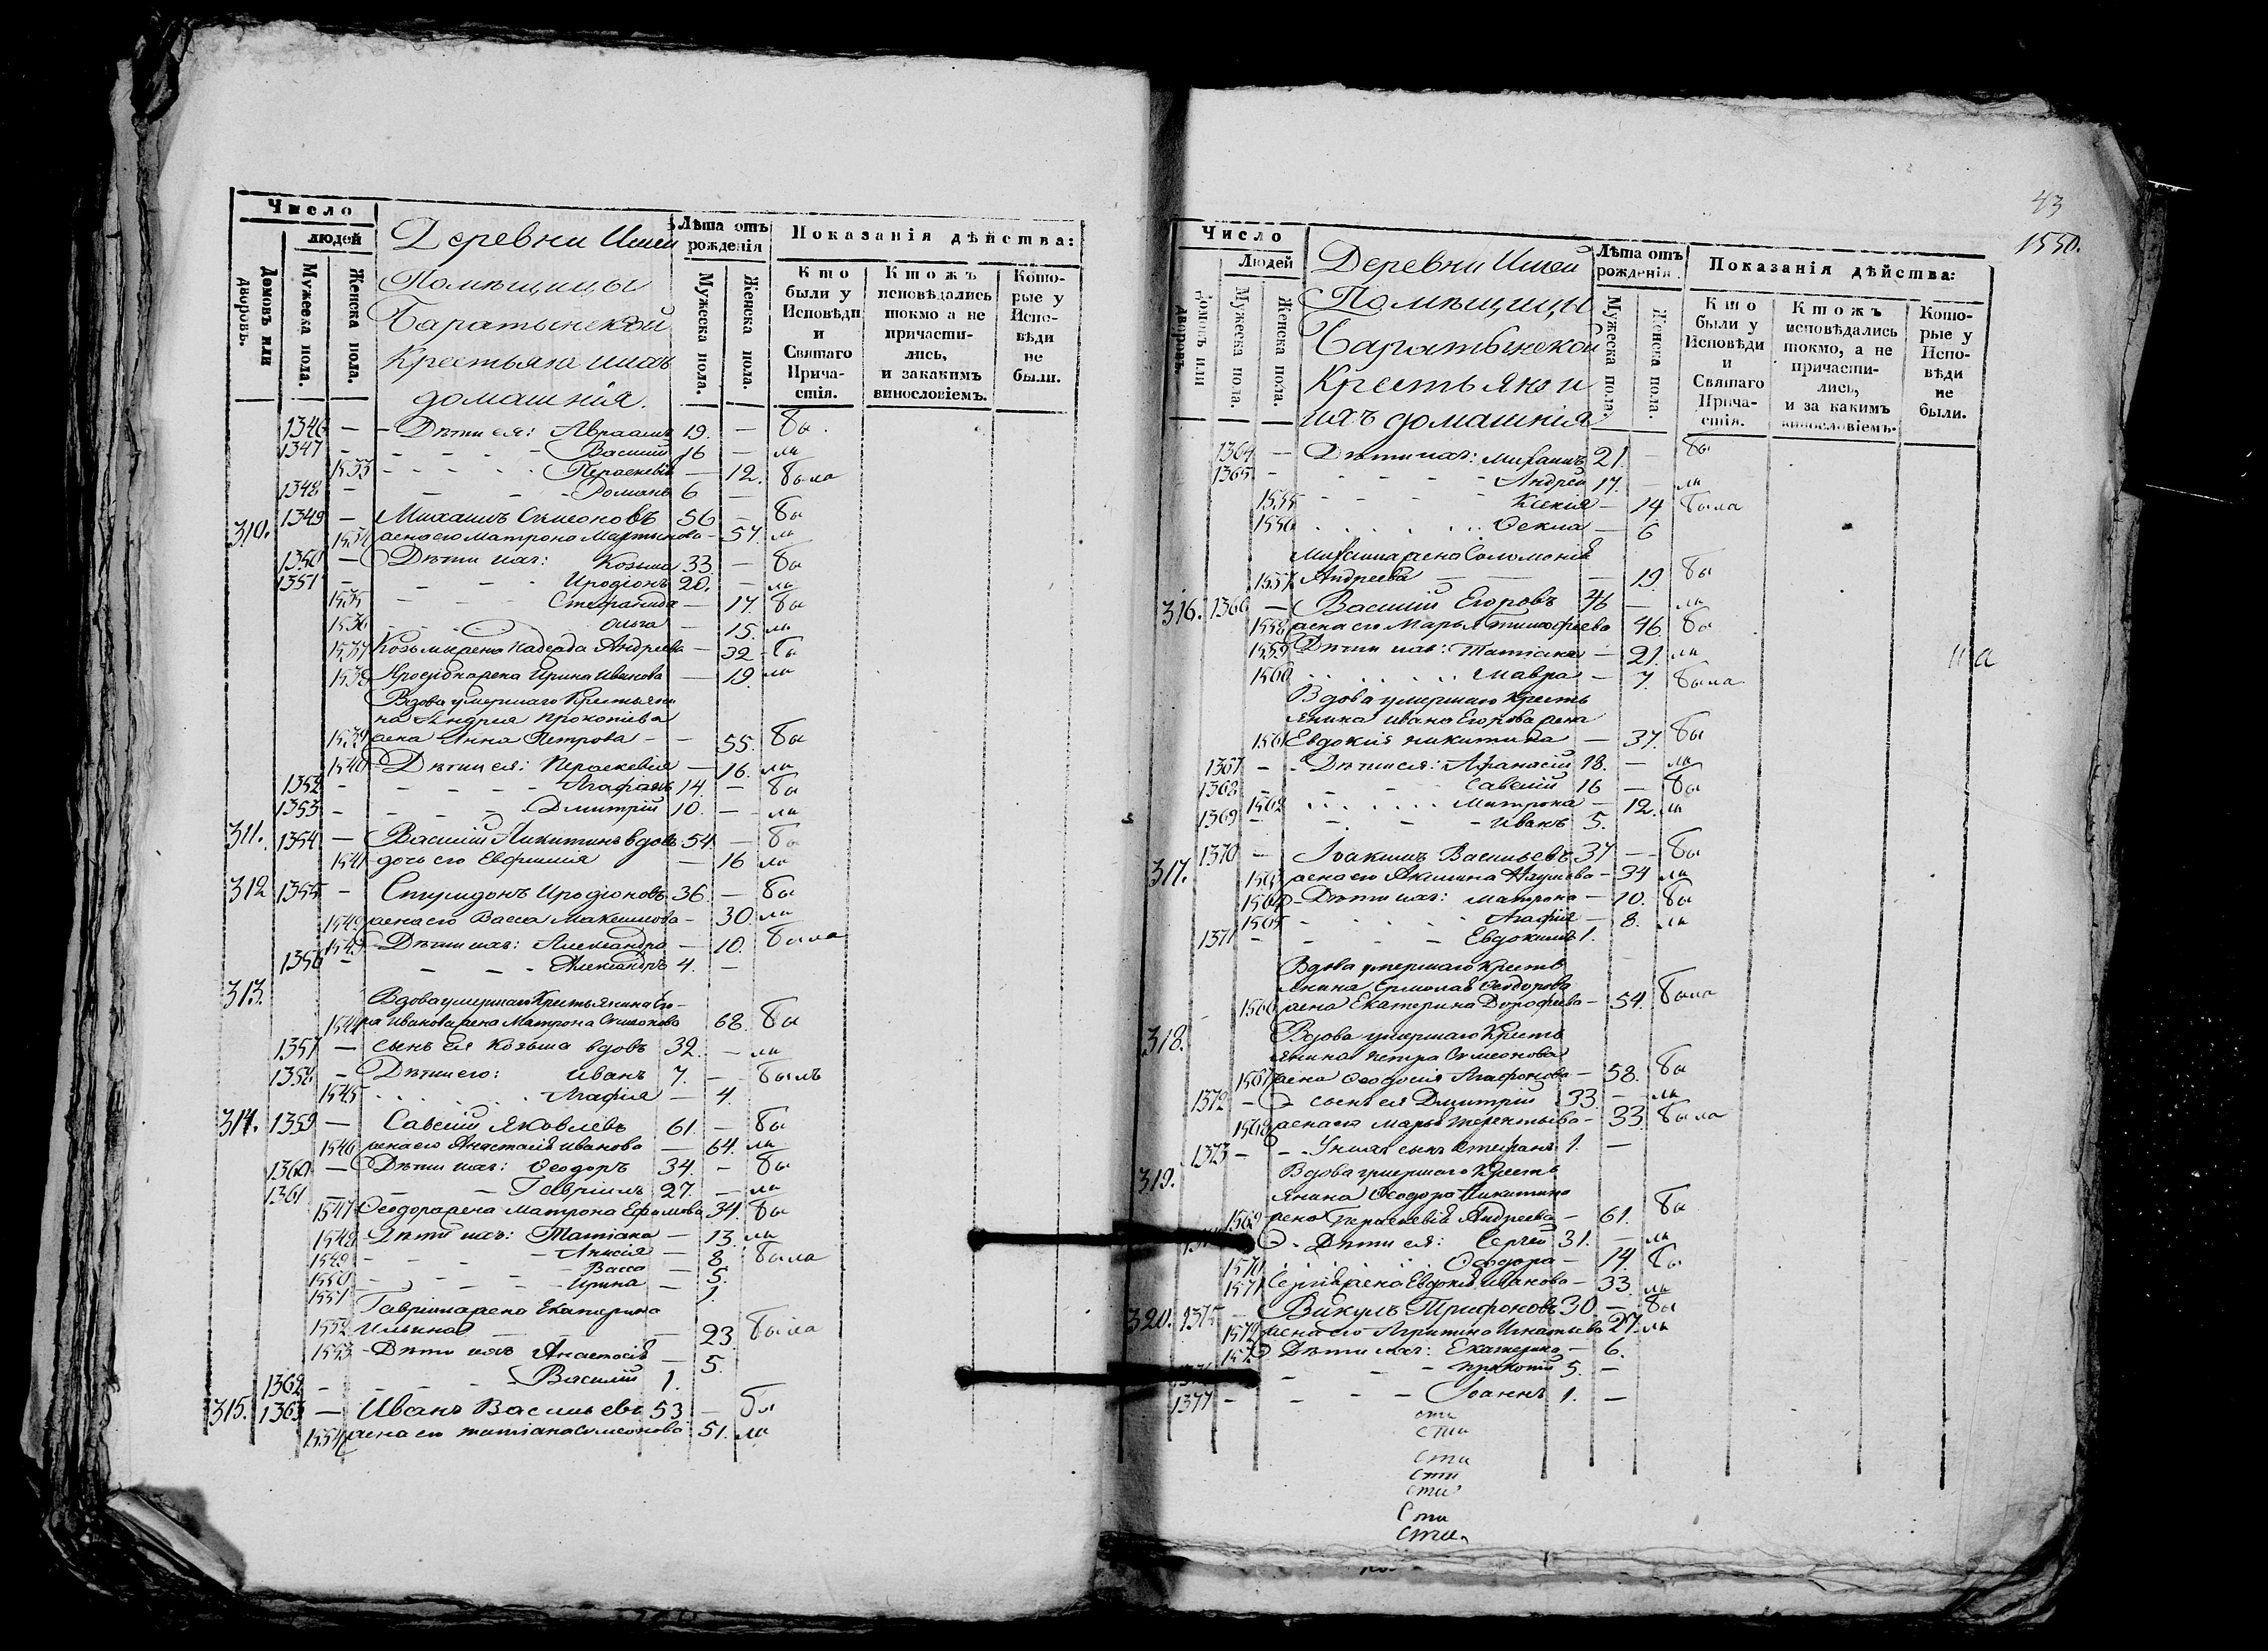 Число
людей
Домовъ или дворовъ.
Мужеска пола.
Женска пола.
Деревни Ишеи
Помѣщицы
Баратынской
Крестьяна ихъ
домашнія.
Лѣта отъ рожденія
Мужеска пола.
Женска пола.
Показанія дѣйства:
Кто были у Исповѣди и Святаго Причастія.
Ктожъ исповѣдались токмо а не причастились, и закакимъ винословіемъ.
Которые у Исповѣди не были.
1346 — Дѣти ея: Авраамъ 19. — бы
1347 - Василій 16 — ли
1533 Параскевія — 12. была
1348 — Романъ 6 —
310. 1349 — Михаилъ Симеоновъ 56 — бы
1534 жена его Матрона Мартынова — 57. ли
1350 — Дѣти ихъ: Козьма 33. — бы
1351 - Иродіонъ 20. — ли
1535 Стефанида — 17. бы
1536 Ольга — 15. ли
1537 Козьмы жена Надежда Андреева — 32 бы
1538 Иродіона жена Ирина Иванова — 19. ли
Вдова умершаго Крестьяни
на Андрея Прокопіева
1539 жена Анна Петрова — 55. бы
1540 Дѣти ея: Параскевія — 16. ли
1352 - Агафонъ 14. — бы
1353 - Дмитрій 10. — ли
311. 1354 — Василій Никитинъ вдовъ 54 — бы
1541 дочь его Евфимія — 16 ли
312 1355 — Спиридонъ Иродіоновъ 36. — бы
1542 жена его Васса Максимова — 30. ли
1543 Дѣти ихъ: Александра — 10. была
1356 — Александръ 4. —
313. Вдова умершаго Крестьянина
1544 Иванова жена Матрона Симеонова 68. бы
1357 — сынъ ея Козьма вдовъ 32. — ли
1358 — Дѣти его: Иванъ 7. — былъ
1545 Агафія — 4.
314. 1359 — Савелій Яковлевъ 61. — бы
1546 жена его Анастасія Иванова — 64. ли
1360 — Дѣти ихъ: Ѳеодоръ 34. — бы
1361 — Гавріилъ 27. — ли
1547 Ѳеодора жена Матрона Ефимова 34. бы
1548 Дѣти ихъ: Татіана — 13. ли
1549 Анисія — 8. была
1550 Васса — 5.
1551 Ирина — 1.
Гавріила жена Екатерина
1552 Ильина — 23. была
1553 Дѣти ихъ Анастасія — 5.
1362 - Василій 1.
315. 1363 — Иванъ Васильевъ 53 — бы
1554 жена его Татіана Симеонова 51. ли
43
1550.
Число
Людей
Домовъ или дворовъ.
Мужеска пола.
Женска пола.
Деревни Ишеи
Помѣщицы
Баратынской
Крестьяно и
ихъ домашнія
Лѣта отъ рожденія.
Мужеска пола.
Женска пола.
Показанія дѣйства:
Кто были у Исповѣди и Святаго Причастія.
Ктожъ исповѣдались токмо, а не причастились, и за какимъ винословіемъ.
Которые у Исповѣди не были.
1364 — Дѣти ихъ: Михаилъ 21. — бы
1365 - Андрей 17. — ли
1555 Ксенія — 14 была
1556 Ѳекла — 6
Михаила жена Соломонія
1557 Андреева — 19. бы
316. 1366 — Василій Егоровъ 46 — ли
1558 жена его Марья Тимофеева 46. бы
1559 Дѣти ихъ: Татіана — 21. ли
1560 Мавра — 7. была
Вдова умершаго Кресть
янина Ивана Егорова жена
1561 Евдокія Никитина — 37. бы
1367 — Дѣти ея: Афанасій 18. — ли
1368 - Савелій 16 — бы
1562 Матрона — 12. ли
1369 — Иванъ 5.
317. 1370 — Іоакимъ Васильевъ 37 — бы
1563 жена его Акилина Наумова — 34 ли
1564 Дѣти ихъ: Матрона — 10. бы
1565 Агафія — 8. ли
1371 — Евдокимъ 1.
Вдова умершаго Кресть
янина Ермолая Ѳеодорова
1566 жена Екатерина Дорофеева — 54. была
318. Вдова умершаго Кресть
янина Петра Симеонова
1567 жена Ѳеодосія Агафонова — 58. бы
1372 — сынъ ея Дмитрій 33. — ли
1568 жена его Марья Терентьева — 33 была
1373 — У нихъ сынъ Стефанъ 1. —
319. Вдова умершаго Кресть
янина Ѳеодора Никитина
1569 жена Параскевія Андреева — 61. бы
Дѣти ея: Сергей 31. — ли
1570 Ѳеодора — 14. бы
1571 Сергія жена Евдокія Иванова — 33. ли
320. 1375 — Викулъ Трифоновъ 30 — бы
1572 жена его Агрипина Игнатьева 27. ли
Дѣти ихъ: Екатерина — 6.
Прокопій 5. —
1377 — Іоаннъ 1. —
сти
сти
сти
сти
сти
сти
сти